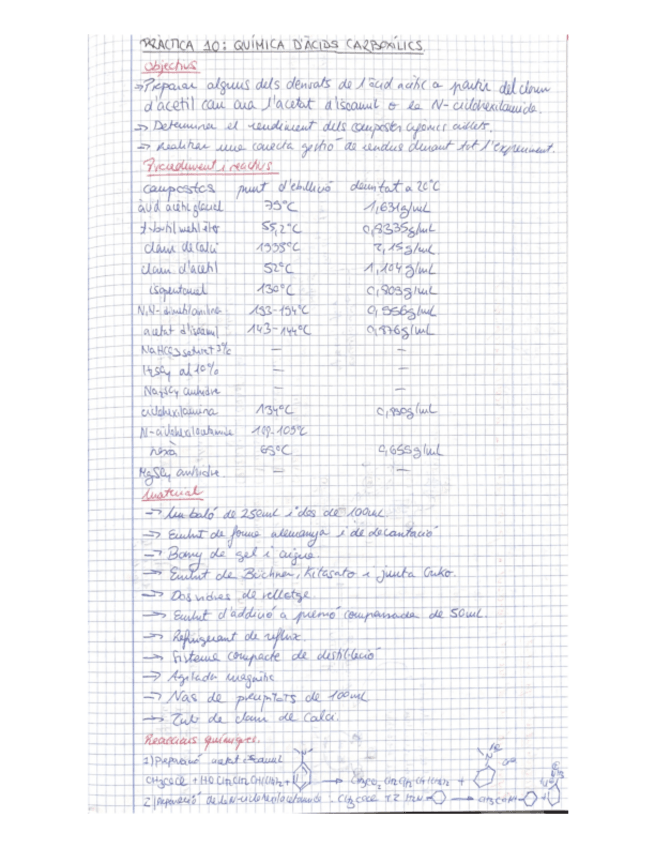 PRÀCTICA 10: QUÍMICA D'ÀCIDS CARBOXÍLICS.
Objectius
→ Preparar alguns dels derivats de l'àcid acètic a partir del clorur
d'acetil com ara l'acetat d'isoamil o la N-ciclohexilamida.
→ Determinar el rendiment dels compostos orgànics aïllats.
→ Realitzar una correcta gestió de residus durant tot l'experiment.
Procediment i reactius
compostos punt d'ebullició densitat a 20°C
àcid acètic glacial 1,631g/mL
t-butil metil èter 55,2°C 0,8335g/mL
clorur de calci 1935°C 2,15g/mL
clorur d'acetil 52°C 1,104g/mL
isopentanol 130°C 0,809g/mL
N,N-dimetilanilina 193-194°C 0,956g/mL
acetat d'isoamil 143-144°C 0,876g/mL
NaHCO3 — —
H2SO4 al 10% — —
Na2SO4 anhidre — —
ciclohexilamina 134°C
N-ciclohexilacetamida
hexà 69°C 0,655g/mL
MgSO4 anhidre — —
Material
→ Un baló de 250mL i dos de 100mL
→ Embut de forma alemanya i de decantació
→ Bany de gel i aigua.
→ Embut de Büchner, Kitasato i junta Guko.
→ Dos vidres de rellotge.
→ Embut d'addició a pressió compensada de 50mL.
→ Refrigerant de reflux.
→ Sistema compacte de destil·lació
→ Agitador magnètic
→ Vas de precipitats de 100mL
→ Tub de clorur de calci.
Reaccions químiques.
1) Preparació acetat isoamil
CH3COCl + HO CH2CH2CH(CH3)2 + → CH3CO2 CH2CH2CH(CH3)2 +
2) Preparació de la N-ciclohexilacetamida CH3COCl + 2 H2N →